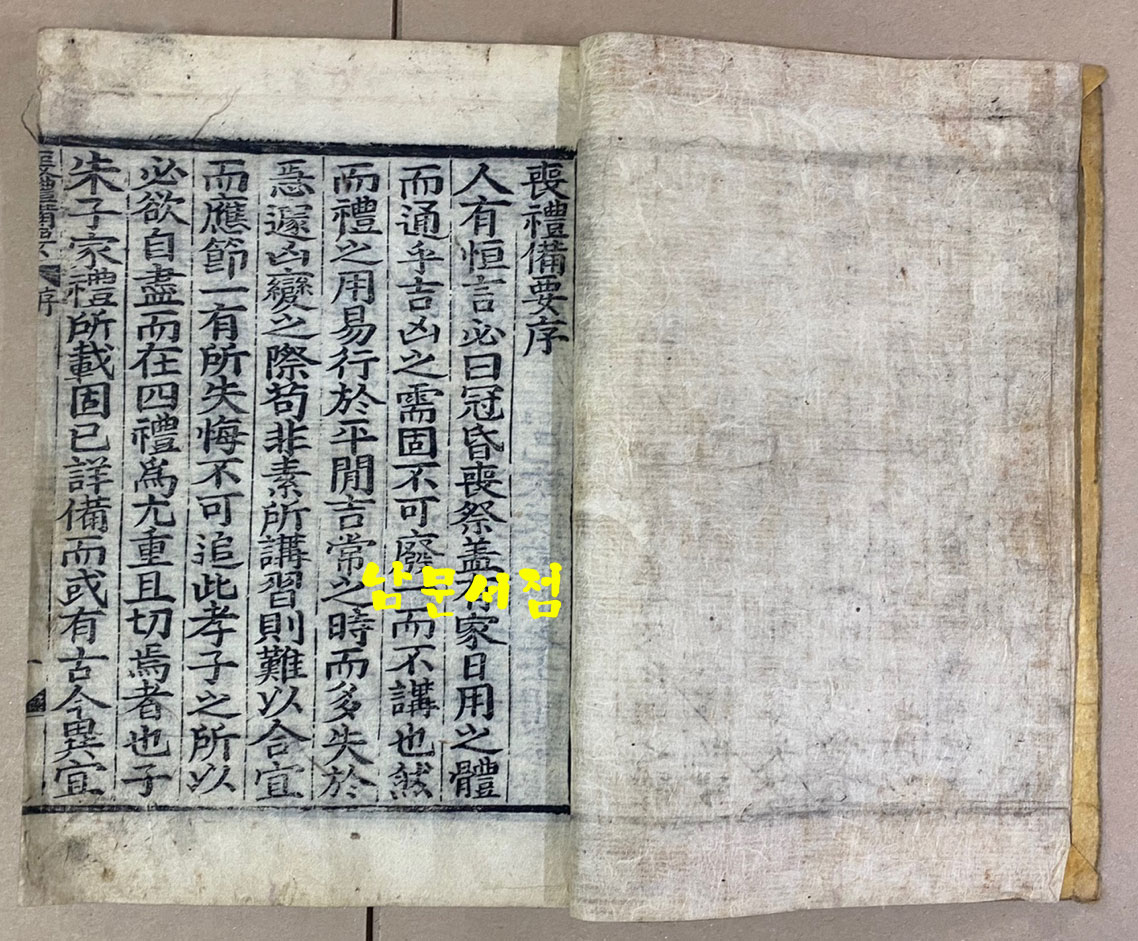 喪禮備要序
人有恒言必曰冠昏喪祭盖有家日用之體
而通乎吉凶之需固不可廢一而不講也然
而禮之用易行於平閒言常之時而多失於
遽凶變之際苟非素所講習則難以合宜
而應節一有所失悔不可追此孝子之所以
必欲自盡而在四禮爲尤重且切焉者也子
朱子家禮所載固已詳備而或有古今異宜
喪禮備要 序
一
남문서점